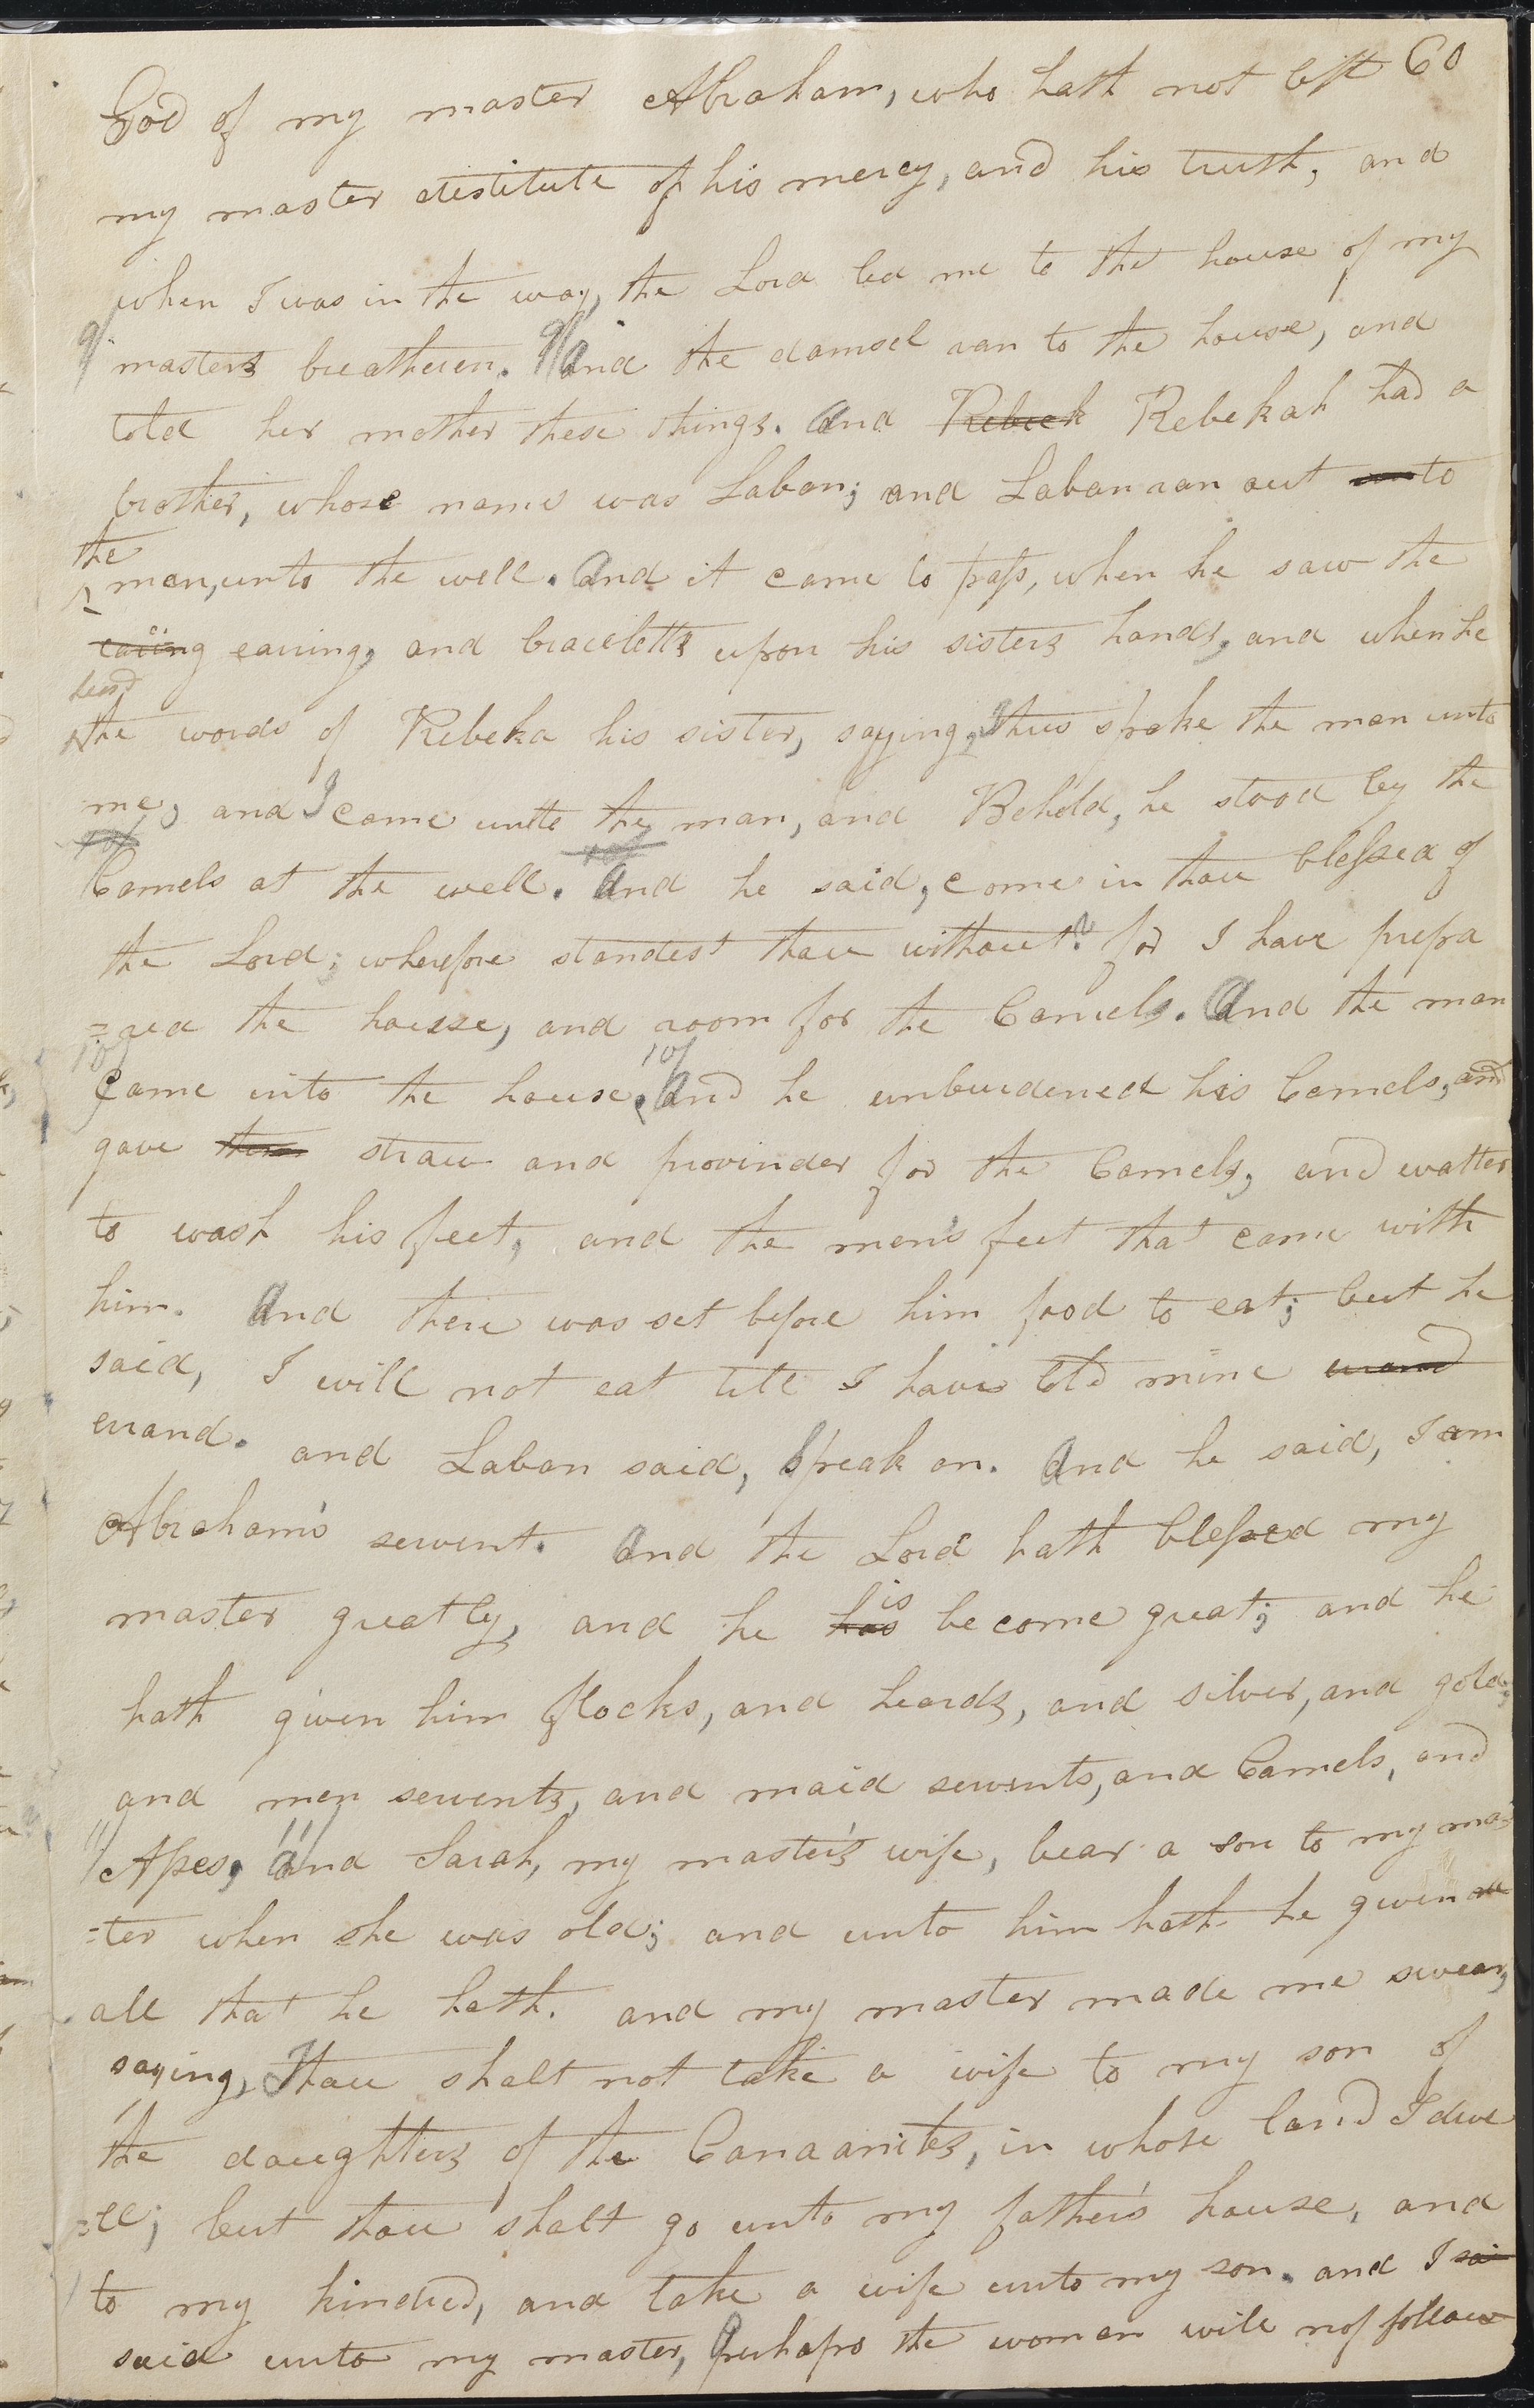 God of my master Abraham, who hath not left 60
my master destitute of his mercy, and his truth, and
when I was in the way, the Lord led me to the house of my
9/ masters breatheren. 9/ And the damsel ran to the house, and
told her mother these things. And Rebeck Rebekah had a
brother, whose name was Laban; and Laban ran out unto
the
man, unto the well. And it came to pass, when he saw the
earing earring, and braceletts upon his sisters hands, and when he
heard
the words of Rebeka his sister, saying, Thus spake the man unto
me, and I came unto the man, and Behold, he stood by the
10/ 10/
Camels at the well. And he said, come in thou blessed of
the Lord; wherefore standest thou without? for I have prepa
=red the house, and room for the Camels. And the man
10/ 10/
Came into the house. And he unburdened his Camels, and
gave them straw and provinder for the Camels, and watter
to wash his feet, and the men's feet that came with
him. And there was set before him food to eat; but he
said, I will not eat till I have told mine errand
errand. and Laban said, Speak on. And he said, I am
Abraham's servent. And the Lord hath blessed my
is
master greatly, and he has become great; and he
hath given him flocks, and heards, and silver, and gold,
and men servents, and maid servents, and Camels, and
11/ Asses, 11/ And Sarah, my master's wife, bear a son to my mas
=ter when she was old; and unto him hath he given all
all that he hath. and my master made me swear,
saying, Thou shalt not take a wife to my son of
the daughters of the Canaanites, in whose land I dwe
=ll; but thou shalt go unto my father's house, and
to my kindred, and take a wife unto my son. and I sai
said unto my master, Perhaps the woman will not follow